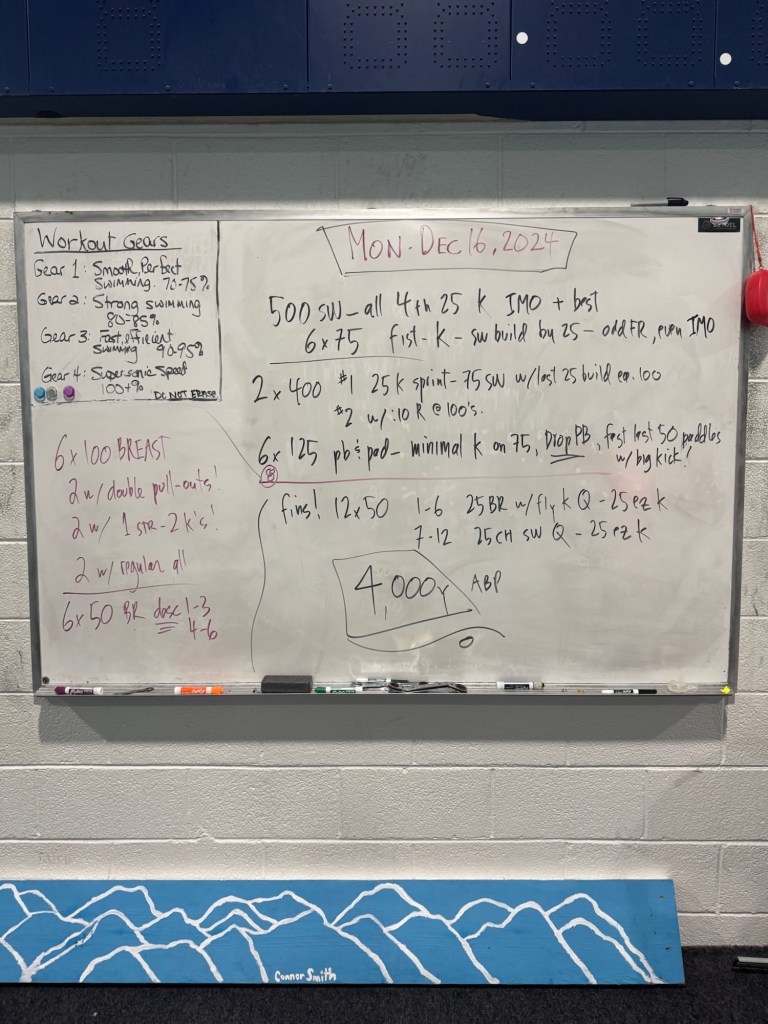 Workout Gears
Gear 1: Smooth, Perfect
Swimming. 70-75%
Gear 2: Strong swimming
80-85%
Gear 3: Fast, efficient
Swimming 90-95%
Gear 4: Supersonic Speed
100+%
DO NOT ERASE
MON. DEC 16, 2024
500 SW - all 4th 25 K IMO + best
6x75 fist - K - sw build by 25 - odd FR, even IMO
2 x 400 #1 25 K sprint - 75 SW w/last 25 build ea. 100
#2 w/ :10 R @ 100's.
6x 125 pb & pad - minimal k on 75, Drop PB, fast last 50 paddles
w/ big kick!
8
fins! 12x50 1-6 25 BR w/ fly k Q - 25 ez k
7-12 25 CH SW Q - 25 ez k
4,000y ABP
6x100 BREAST
2 w/ double pull-outs!
2 w/ 1 STR - 2 k's!
2 w/ regular all
6x50 BR desc 1-3
4-6
Connor Smith